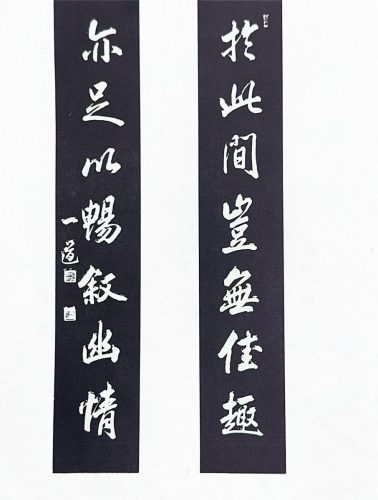 於此間豈無佳趣
亦足以暢叙幽情
一道